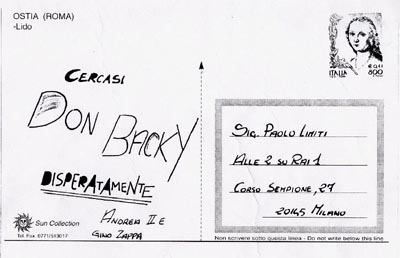 OSTIA (ROMA)
-Lido
CERCASI
DON BACKY
DISPERATAMENTE
ANDREA II E
GINO ZAPPA
Sun Collection
ITALIA 800
SIG. PAOLO LIMITI
ALLE 2 SU RAI 1
CORSO SEMPIONE, 27
20145 MILANO
Non scrivere sotto questa linea - Do not write below this line